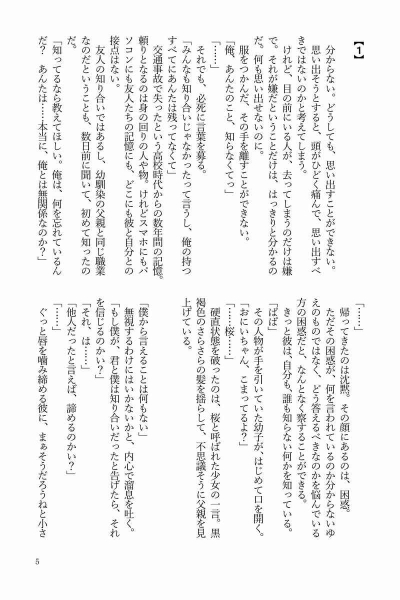 【1】
分からない。どうしても、思い出すことができない。
思い出そうとすると、頭がひどく痛んで、思い出すべ
きではないのかと考えてしまう。
けれど、目の前にいる人が、去ってしまうのだけは嫌
で。それが嫌だということだけは、はっきりと分かるの
だ。何も思い出せないのに。
服をつかんだ、その手を離すことができない。
「俺、あんたのこと、知らなくてっ」
「……」
それでも、必死に言葉を募る。
「みんなも知り合いじゃなかったって言うし、俺の持つ
すべてにあんたは残ってなくて」
交通事故で失ったという高校時代からの数年間の記憶。
頼りとなるのは身の回りの人や物。けれどスマホにもパ
ソコンにも友人たちの記憶にも、どこにも彼と自分との
接点はない。
友人の知り合いではあるし、幼馴染の父親と同じ職業
なのだということも、数日前に聞いて、初めて知ったの
だ。
「知ってるなら教えてほしい。俺は、何を忘れているん
だ？　あんたは……本当に、俺とは無関係なのか？」
「……」
帰ってきたのは沈黙。その顔にあるのは、困惑。
ただその困惑が、何を言われているのか分からないゆ
えのものではなく、どう答えるべきなのかを悩んでいる
方の困惑だと、なんとなく察することができる。
きっと彼は、自分も、誰も知らない何かを知っている。
「ぱぱ」
その人物が手を引いていた幼子が、はじめて口を開く。
「おにいちゃん、こまってるよ？」
「……桜……」
硬直状態を破ったのは、桜と呼ばれた少女の一言。黒
褐色のさらさらの髪を揺らして、不思議そうに父親を見
上げている。
「僕から言えることは何もない」
無視するわけにはいかないかと、内心で溜息を吐く。
「もし僕が、君と僕は知り合いだったと告げたら、それ
を信じるのかい？」
「それ、は……」
「他人だったと言えば、諦めるのかい？」
「……」
ぐっと唇を噛み締める彼に、まぁそうだろうねと小さ
5